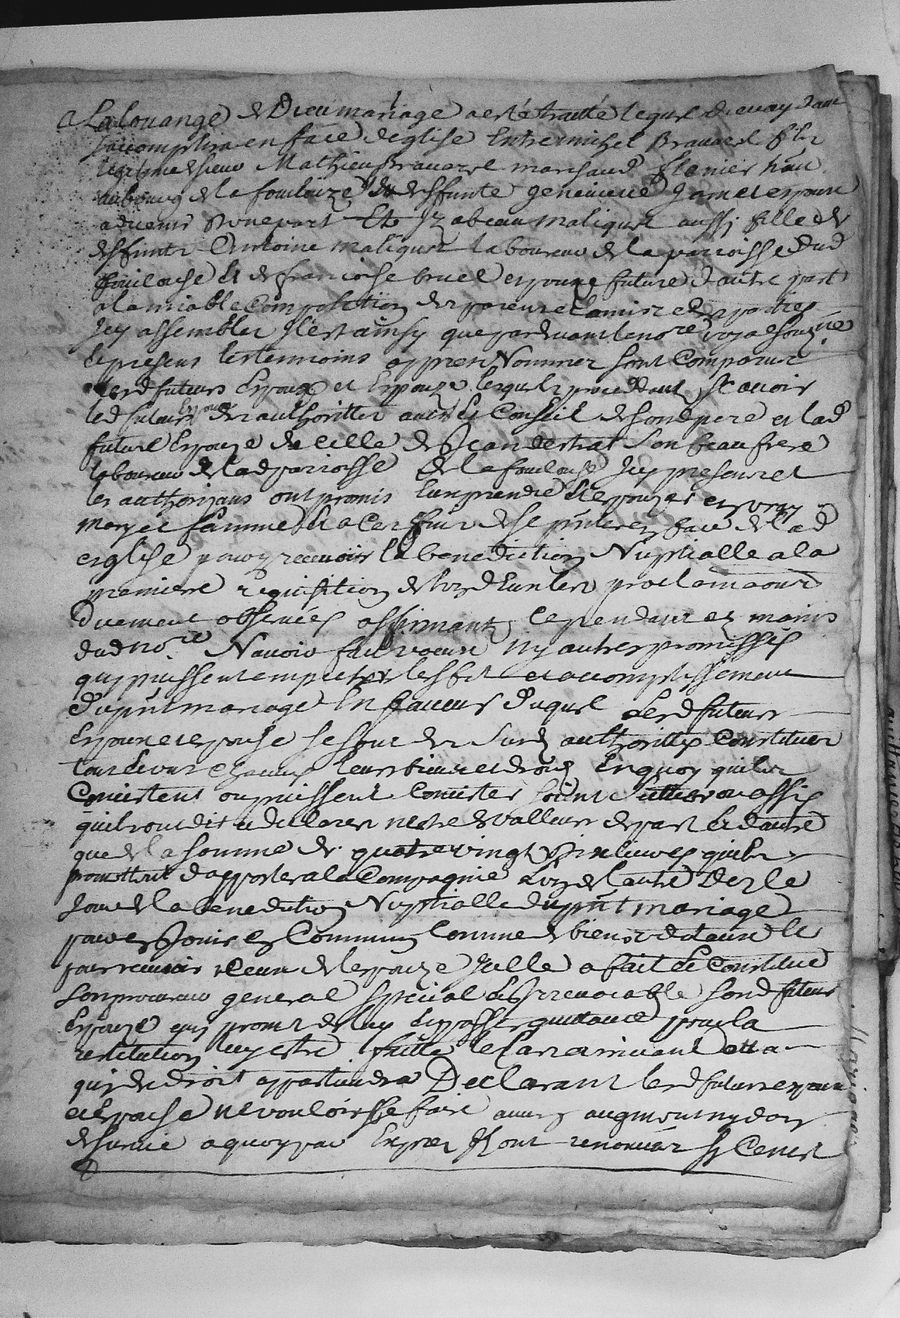 A La louange de Dieu mariage a esté traitté lequel Dieu ayd
saccomplira en face deglise Entre michel Bravard fils
legitime de sieur Mathieu Bravard marchand
au bourg de la fouliouze de deffunte genevieve espoux
advenir dunepart Et Izabeau maliquet aussy fille de
deffunt Antoine maliquet laboureur de la paroisse dud
fouilouse et de francoise bruel espouze future dautre part
a lamiable composition de parens et amis desd parties
Icy assemblez Il est ainsy que pardevant le no.re royal soubz.né
Et presens les temoins apprez Nommez sont comparus
lesd futurs Espoux et Espouze lesquelz procedant scavoir
led futur Espoux de lauthoritter et conseil de sond pere et lad
future Espouze de celle de Jean destrat son beau frere
laboureur de lad paroisse de la fouliouse Icy presens et
les authorisans ont promis Semprendre et Espouzer en vray
maryet famme Et a ces fins de se pn̄ter en face de lad
esglise pour y recevoir la benediction Nuptialle a la
premiere requisition de lun deux les proclamaons
Duement observées affirmants cependant ez mains
dud no.re Navoir fait voeux Ny autres promesses
quy puissent empecher leffet et accomplissement
du pn̄t mariage En faveur duquel Lesd futurs
Espoux et espouse se sont de Leursd authorittés Constituez
tous et uns chacuns leurs biens et droitz En quoy quilz
Consistent ou puissent Consister
quils ont dit et declarer nestre de valleur de part et dautre
que de la somme de quatre vingt dix livres quils
promettent dapporter a la Compagnie Lun de lautre Dez le
Jour de la benediction Nuptialle du pn̄t mariage
pour en Jouir en Commun Comme de biens dotaux Et
pour recevoir ceux de lespouze Icelle a fait et Constitué
son procureur general special et Irrevocable sond futeur
Espoux quy promt de luy en passer quittance pour la
restitution luy estre faitte le cas advenant ou a
quy de droit appartiendra Declarant lesd futurs espoux
et espouse ne vouloir se faire aucun augment ny don
de survie a quoy par Exprez Ils ont renoncéz Si Ceux